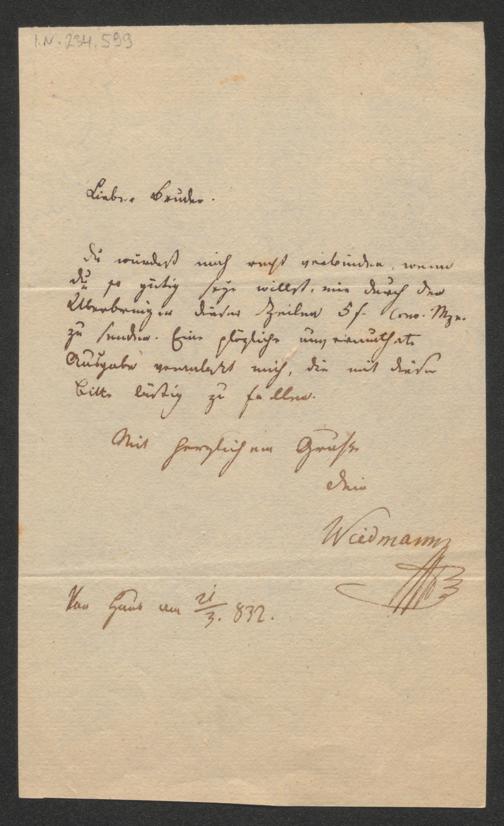 I.N. 234.599
Lieber Bruder.
Du würdest mich recht verbinden, wenn
du so gütig seyn willst, mir durch den
Überbringer dieser Zeilen 5 f. Conv. Mze.
zu senden. Eine plözliche unvermuthete
Ausgabe veranlasst mich, dir mit dieser
Bitte lästig zu fallen.
Mit herzlichem Grusse
dein
Wiedmann
Von Haus am 21/3. 832.